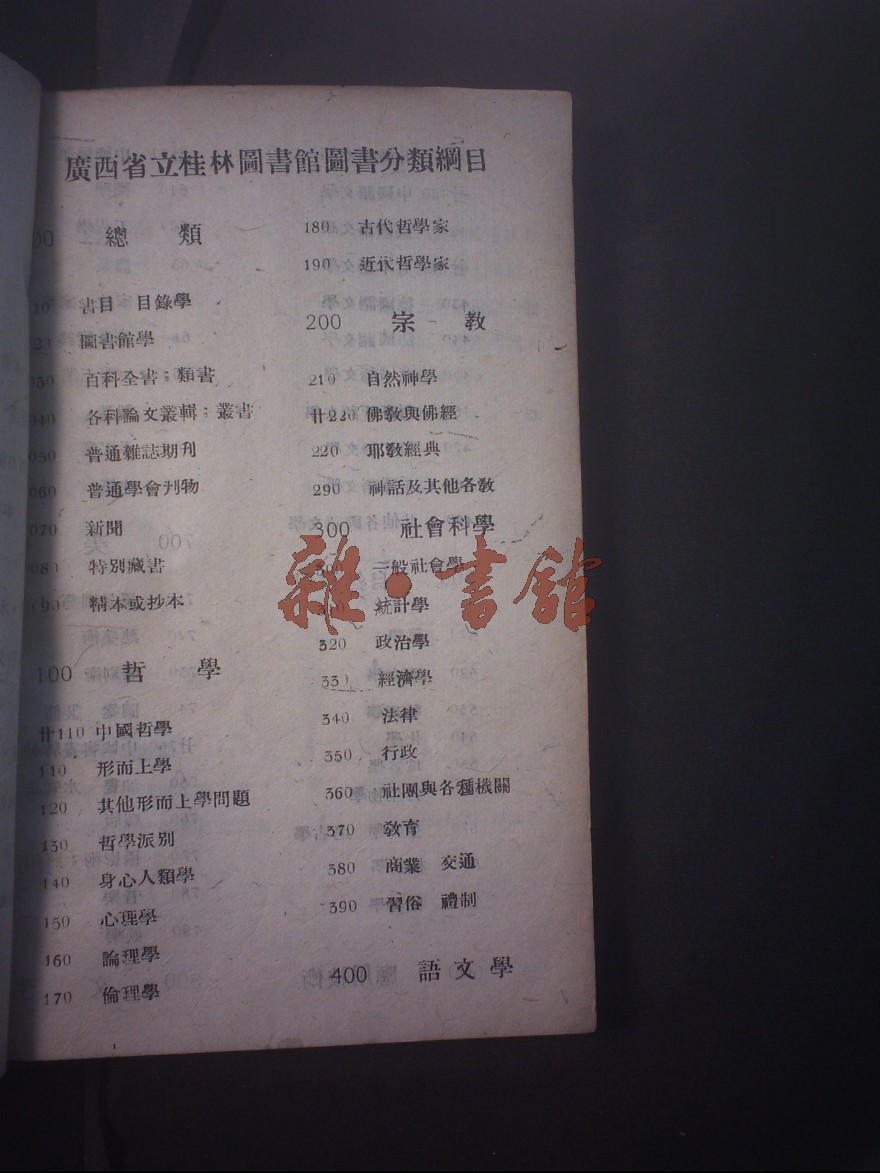 廣西省立桂林圖書館圖書分類綱目
00 總類
10 書目 目錄學
20 圖書館學
030 百科全書；類書
040 各科論文叢輯；叢書
050 普通雜誌期刊
060 普通學會刋物
070 新聞
080 特別藏書
090 精本或抄本
100 哲學
廿110 中國哲學
110 形而上學
120 其他形而上學問題
130 哲學派別
140 身心人類學
150 心理學
160 論理學
170 倫理學
180 古代哲學家
190 近代哲學家
200 宗教
210 自然神學
廿220 佛教與佛經
220 耶教經典
290 神話及其他各教
300 社會科學
300 一般社會學
統計學
320 政治學
330 經濟學
340 法律
350 行政
360 社團與各種機關
370 教育
380 商業 交通
390 習俗 禮制
400 語文學
雜·書館